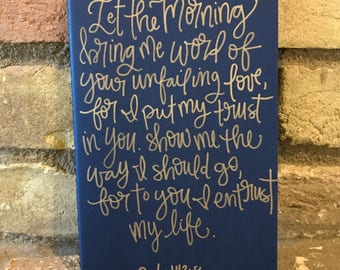 Let the Morning
bring me word of
your unfailing love,
for I put my trust
in you. Show me the
way I should go,
for to you I entrust
my life.